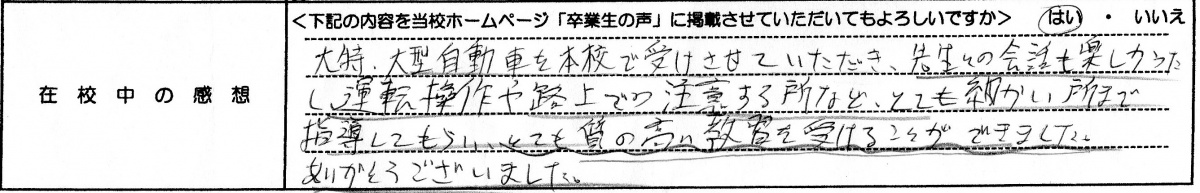 <下記の内容を当校ホームページ「卒業生の声」に掲載させていただいてもよろしいですか> はい ・ いいえ
在校中の感想
大特、大型自動車を本校で受けさせていただき、先生との会話も楽しかった
し、運転操作や路上での注意する所など、とても細かい所まで
指導してもらい、とても質の高い教習を受けることができました。
ありがとうございました。